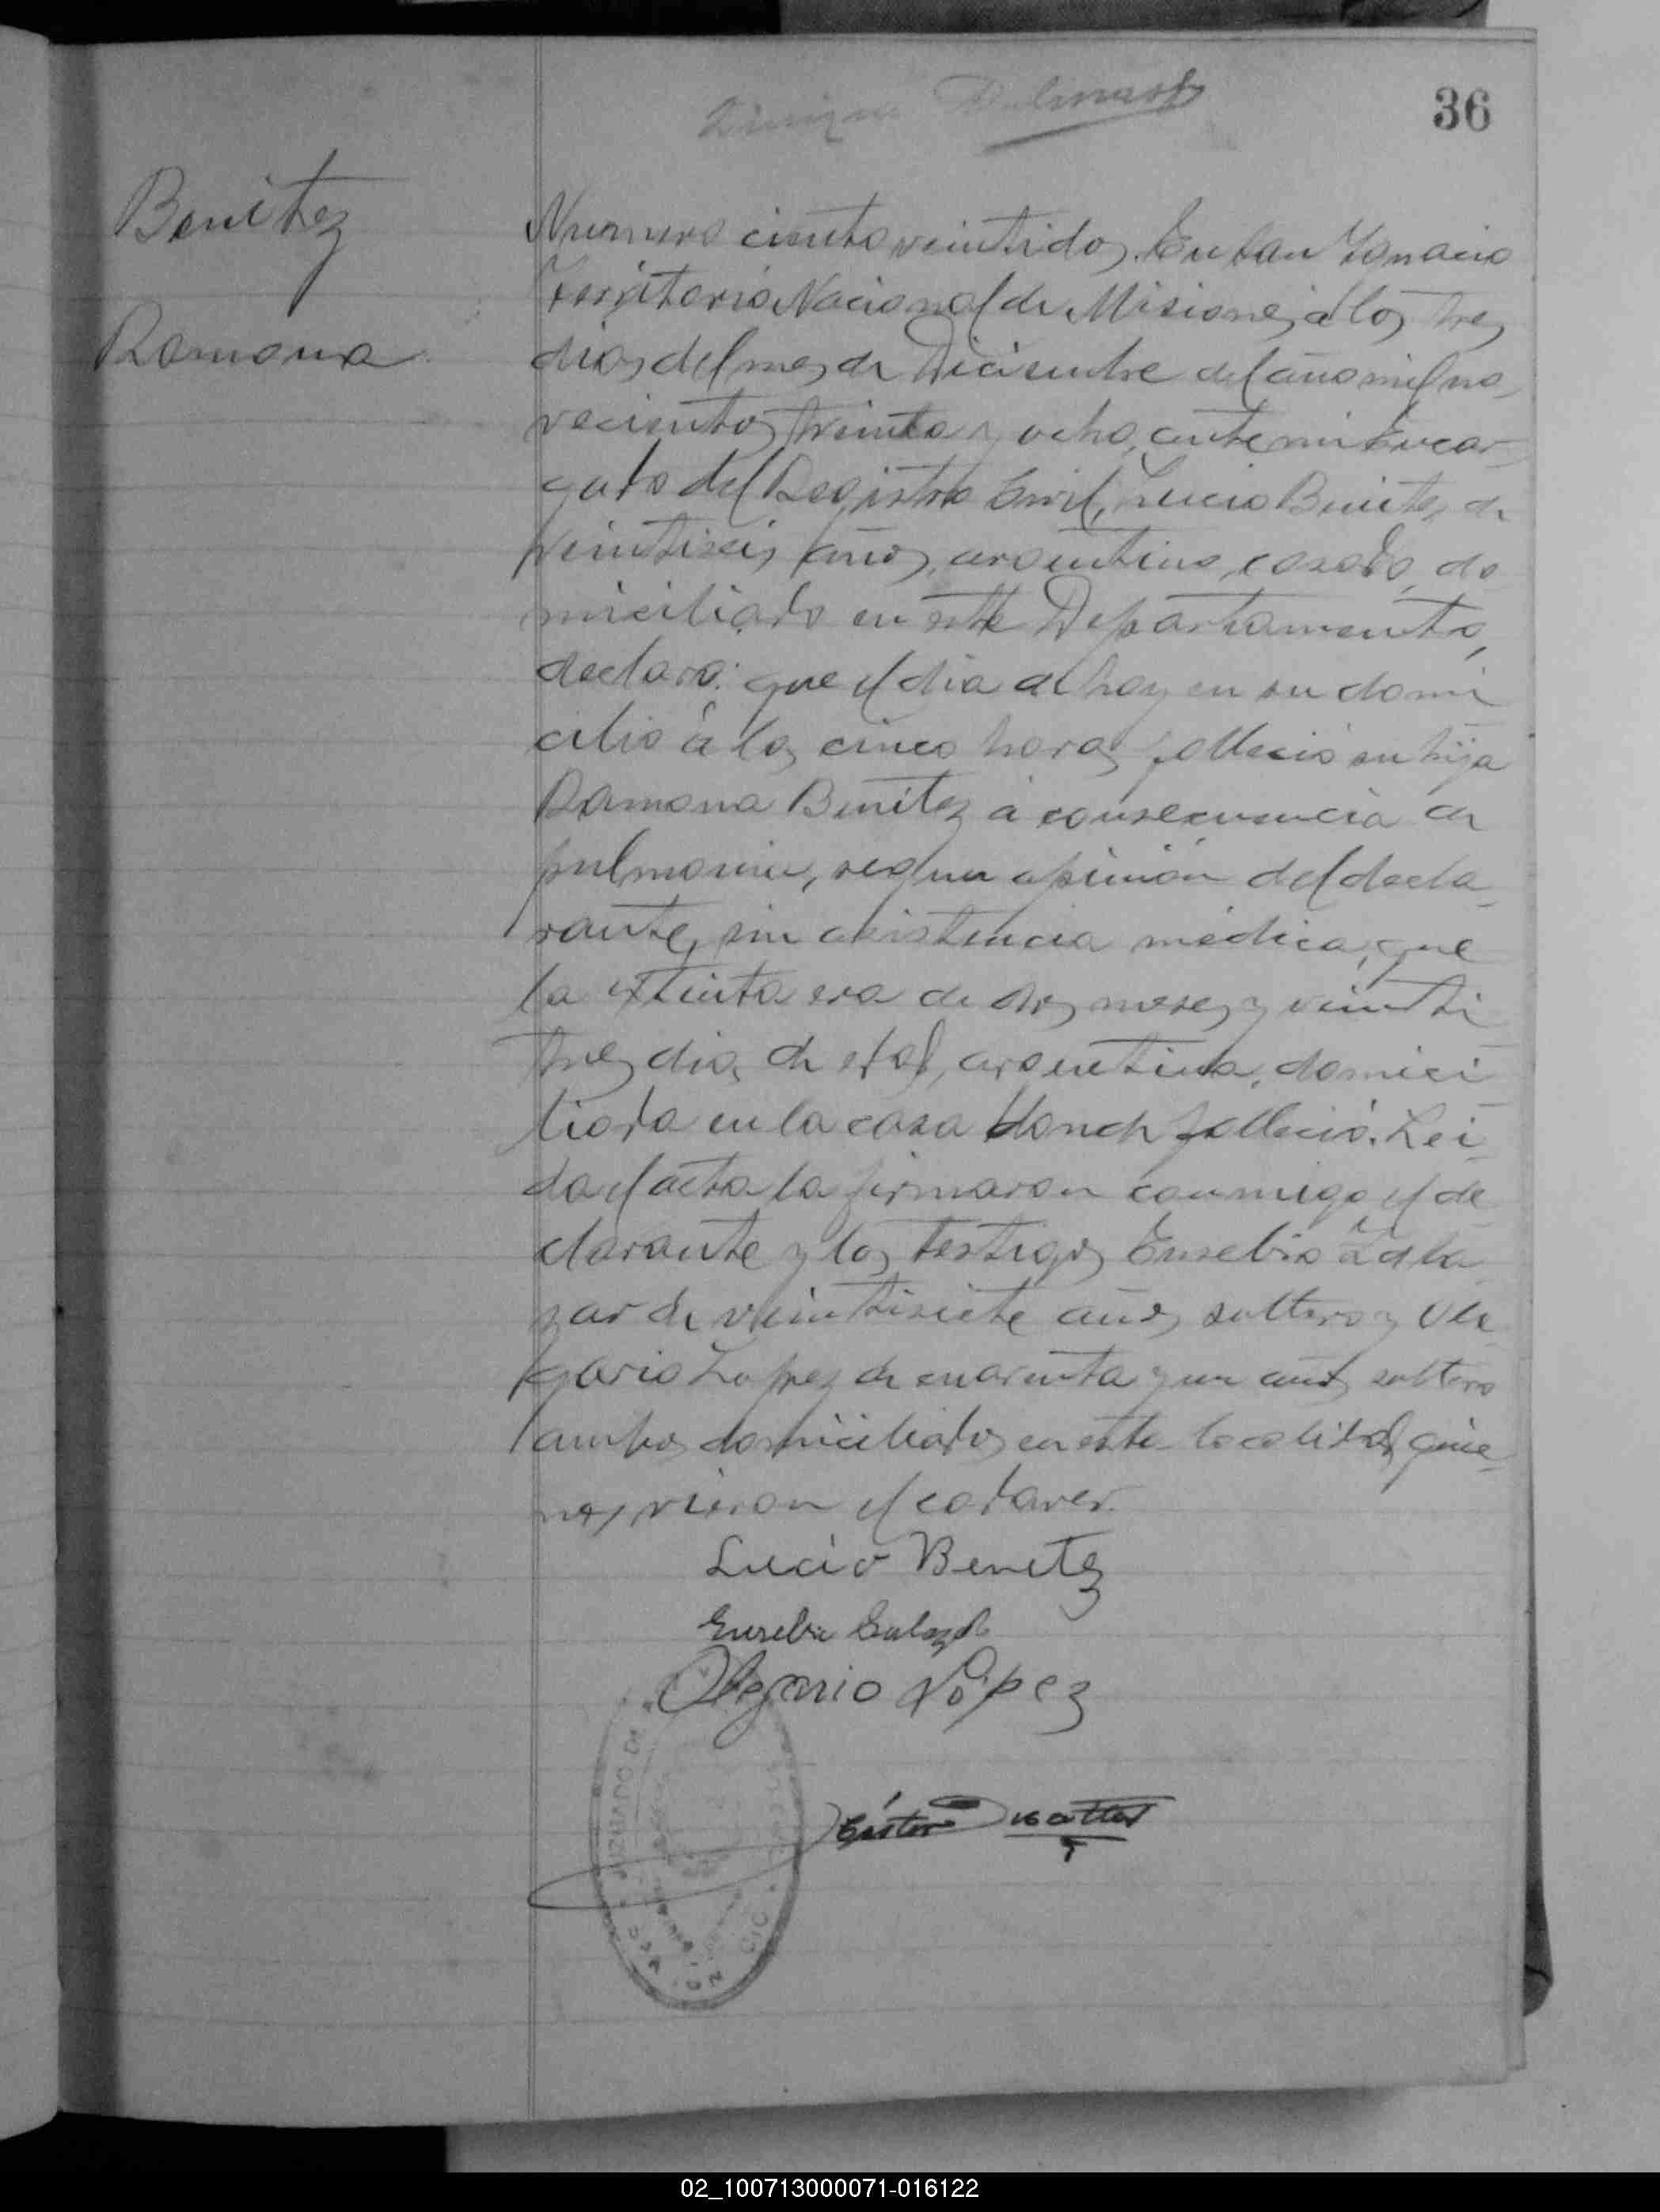 36
Benitez
Ramona
Numero ciento veintidos. En San Ignacio
Territorio Nacional de Misiones, á los tres
dias del mes de Diciembre del año mil no-
vecientos treinta y ocho, ante mi Encar-
gado del Registro Civil, Lucio Benitez, de
veintiseis años, argentino, casado, do
miciliado en este Departamento,
declaro: que el dia de hoy en su domi
cilio á las cinco horas falleció su hija
Ramona Benítez á consecuencia de
pulmonia, segun opinión del decla-
rante, sin asistencia médica; que
la extinta era de dos meses y veinti
tres dias de edad, argentina, domici
liada en la casa donde falleció. Lei-
da el acta la firmaron conmigo el de
clarante y los testigos Eusebio Zala
zar de veintisiete años, soltero y Ole
gario Lopez de cuarenta y un años, soltero
ambos domiciliados en esta localidad, quie-
nes vieron el cadaver.
Lucio Benitez
Eusebio
Olegario López
JUZGADO DE